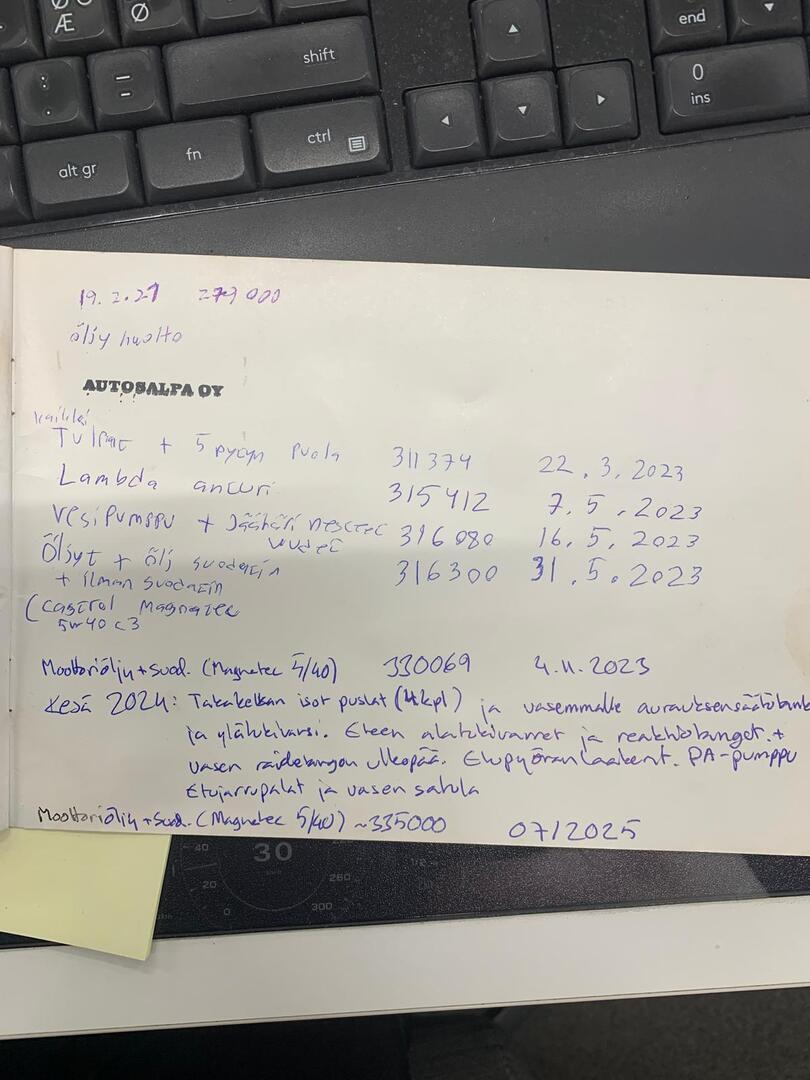 Æ Ø
Ø
end
shift
0
ins
: ;
alt gr
fn
ctrl
19.2.21 279 000
Öljy huolto
AUTOSALPA OY
kaikki
Tulpat + 5 pytyn puola 311374 22.3.2023
Lambda anturi 315412 7.5.2023
Vesipumppu + Jäähdi nesteet 316080 16.5.2023
uudet
Öljyt + ölj suodatin 316300 31.5.2023
+ ilman suodatin
(castrol magnatec
5w40 c3
Moottoriöljy + suod. (Magnatec 5/40) 330069 4.11.2023
Kesä 2024: Takakelkan isot puslat (4kpl) ja vasemmalle aurauksensäätötanko
ja ylätukivarsi. Eteen alatukivarret ja reaktiotangot. +
vasen raidetangon ulkopää. Etupyöränlaakerit. PA-pumppu
Etujarrupalat ja vasen satula
Moottoriöljy + suod. (Magnatec 5/40) ~335000 07/2025
40
30
1/2
20
260
0
300